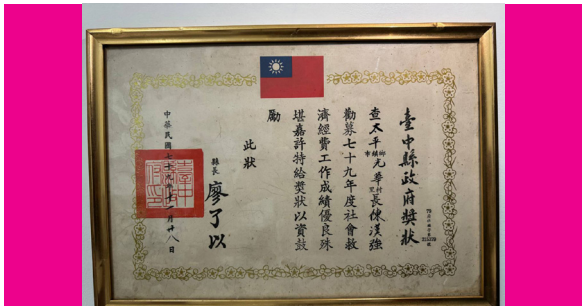 臺中縣政府獎狀
查太平鄉鎮市光華村里長陳漢強
勸募七十九年度社會救
濟經費工作成績優良殊
堪嘉許特給獎狀以資鼓
勵
此狀
縣長廖了以
中華民國七十九年十二月廿八日